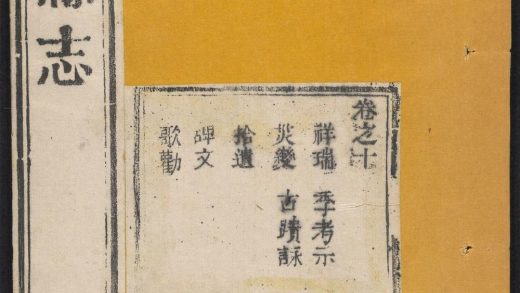 卷之十
祥瑞 季考示
災變 古蹟詠
拾遺
碑文
歌勸
志